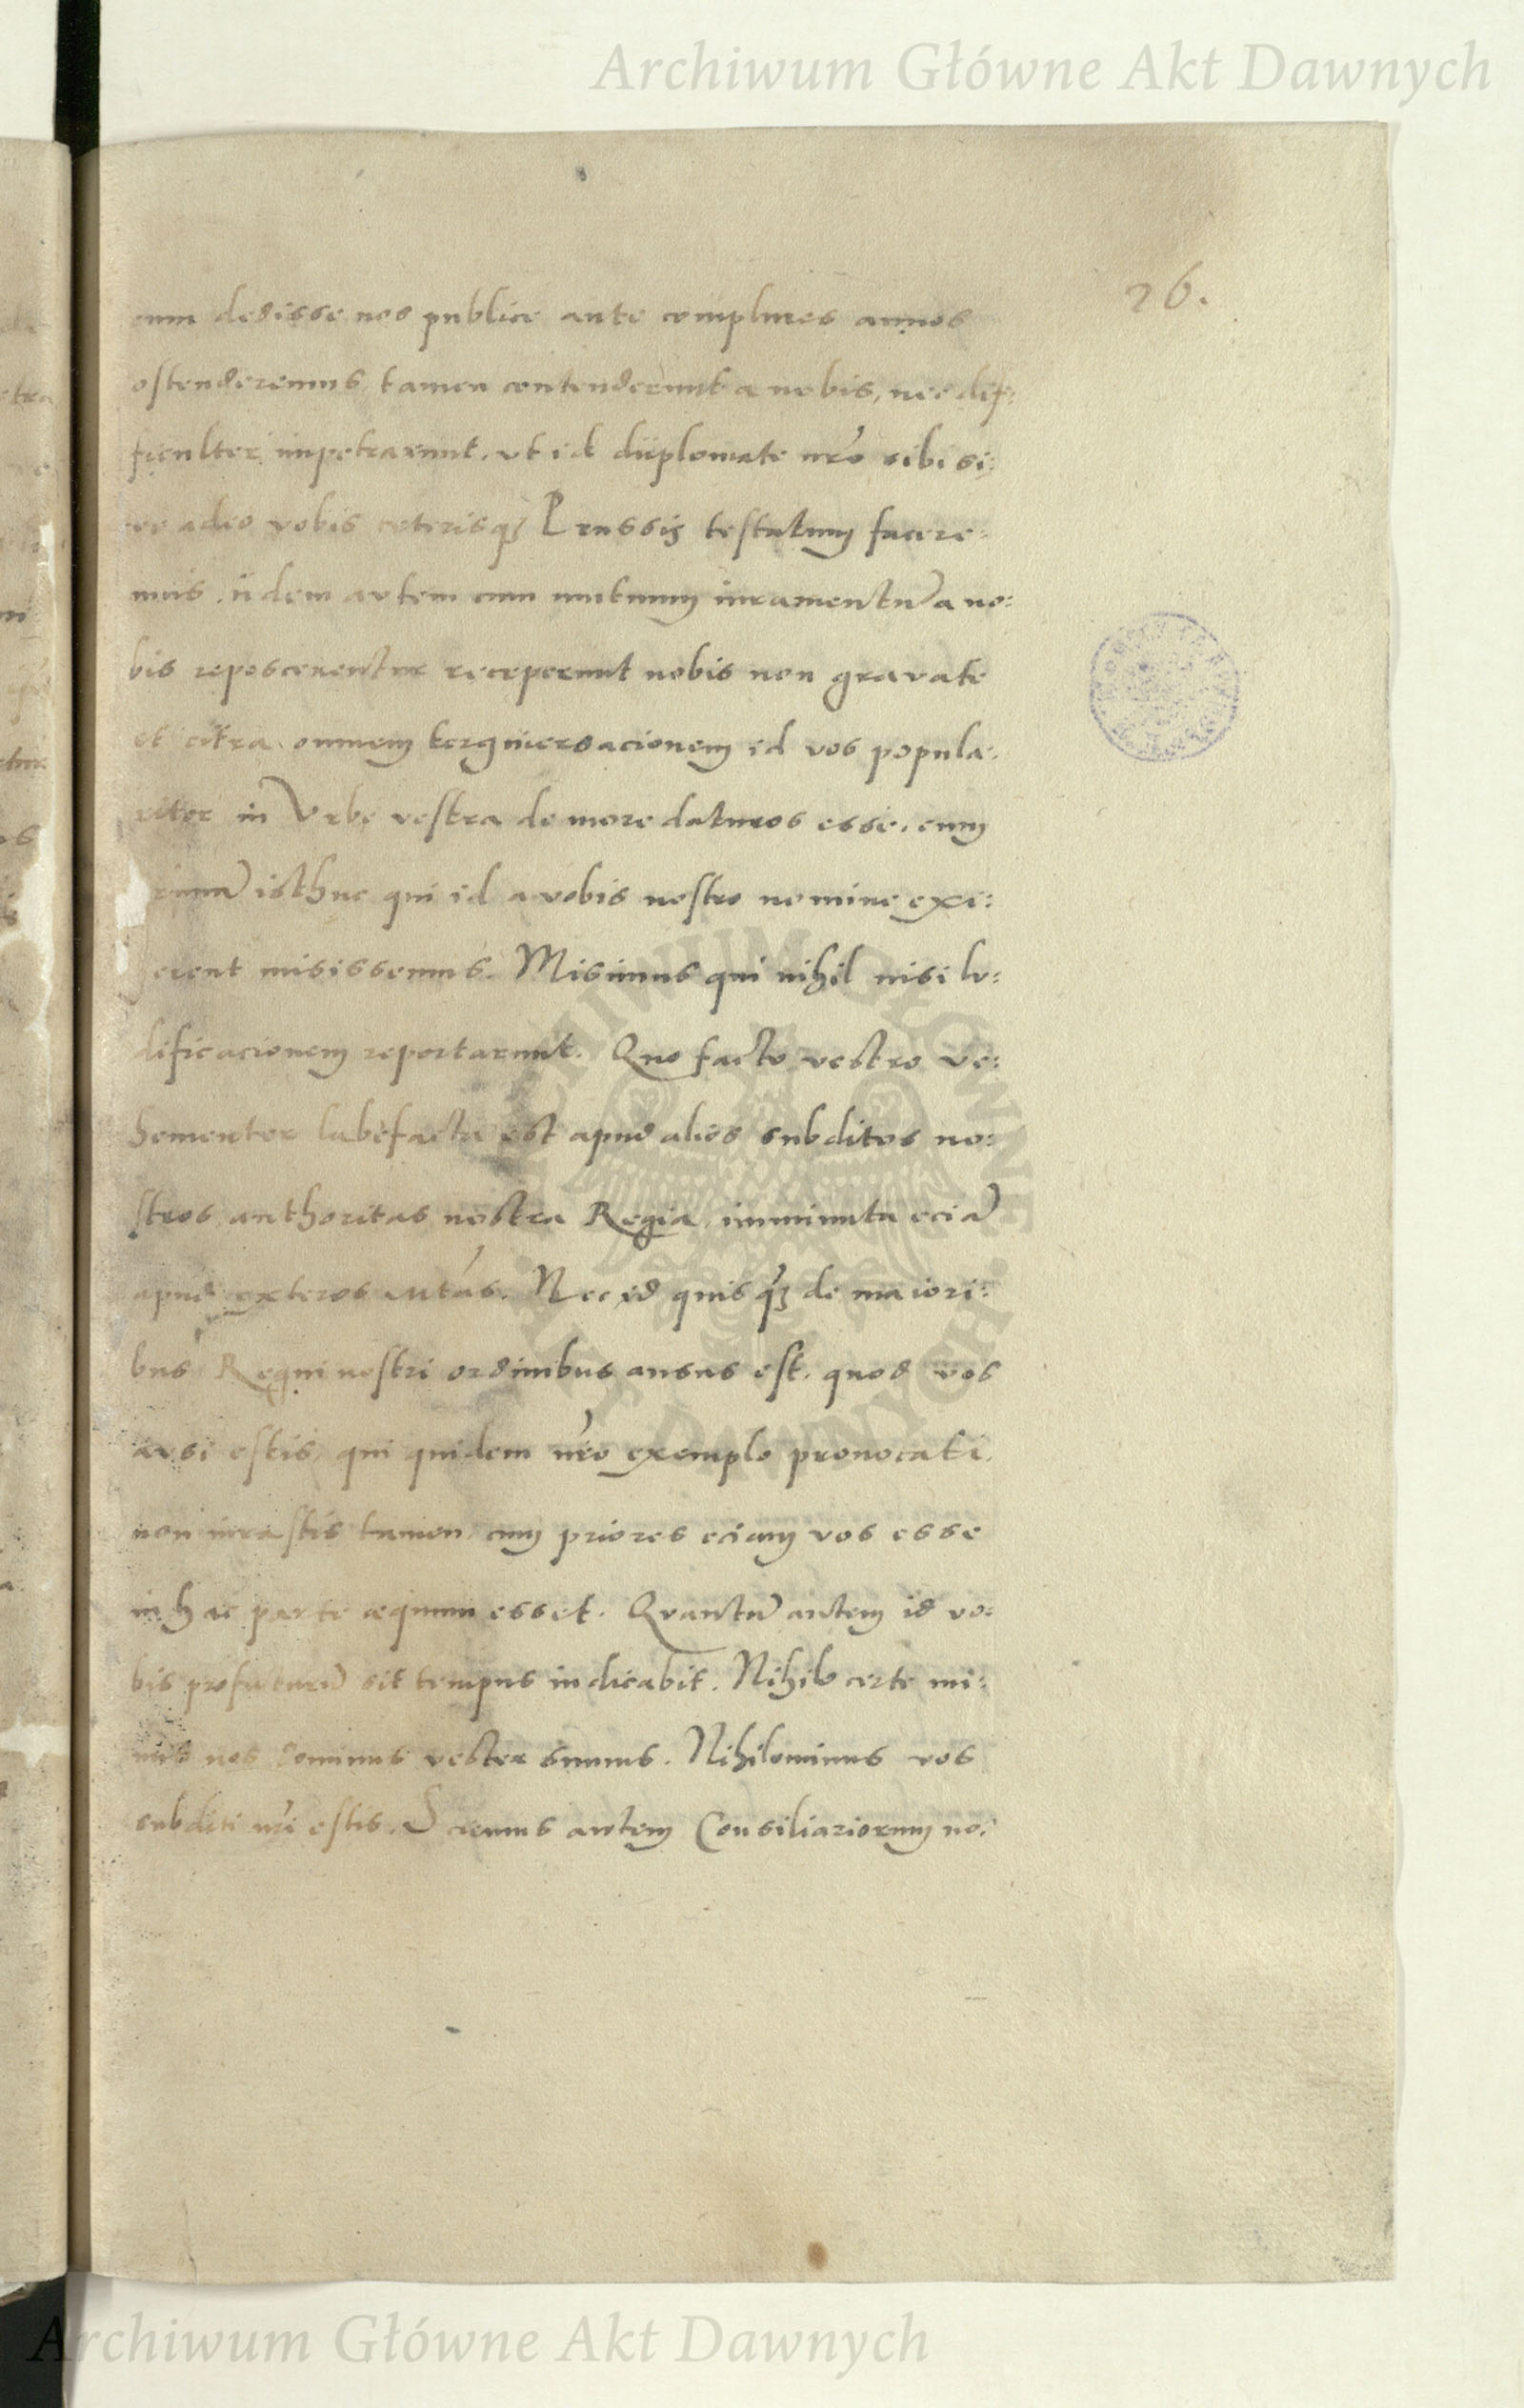 Archiwum Główne Akt Dawnych
26.
eum dedisse nos publice ante complures annos
ostenderemus, tamen contenderunt a nobis, nec dif:
ficulter impetrarunt, vt id diiplomate nr̃o sibi si:
ve adeo vobis ceterisq₃ Prussis testatum facere:
mus. iidem autem cum mutuum iuramentũ a no:
bis reposcerentur receperunt nobis non gravate
et citra omnem tergiuersacionem id vos popula:
riter in Vrbe vestra de more daturos esse, cum
primũ isthuc qui id a vobis nostro nomine exi:
erent misissemus. Misimus qui nihil nisi lu:
dificacionem reportarunt. Quo facto vestro ve:
hementer labefacta est apud alios subditos no:
stros authoritas nostra Regia, imminuta eciã
apud exteros. Nec id quisq₃ de maiori:
bus Regni nostri ordinibus ausus est, quod vos
avsi estis, qui quidem nr̃o exemplo prouocati,
non iurastis tamen, cum priores eciam vos esse
in hac parte æquum esset. Qvantũ autem id vo:
bis profuturũ sit tempus indicabit. Nihilo certe mi:
nus nos dominus vester sumus. Nihilominus vos
subditi nr̃i estis. Scimus autem Consiliariorum no:
Archiwum Główne Akt Dawnych